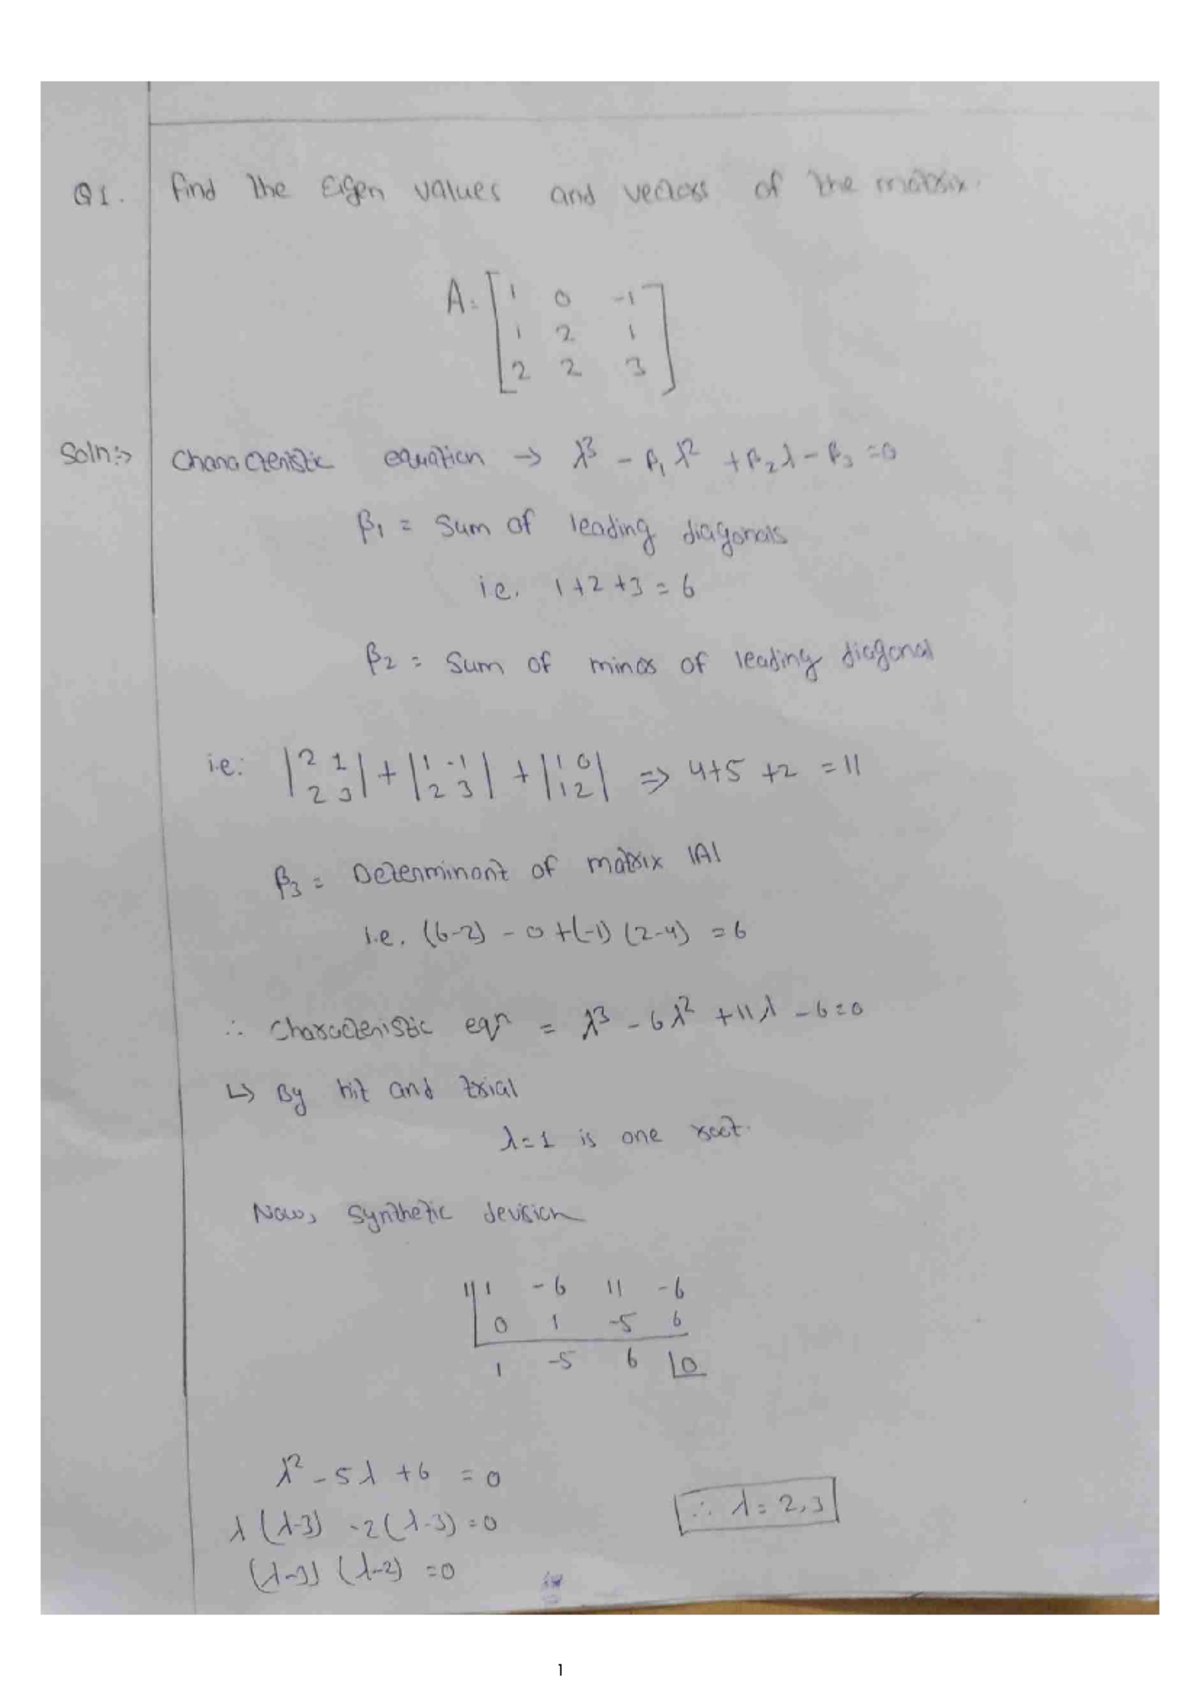 Q1. Find the Eigen values and vectors of the matrix.
A = [1 0 -1
1 2 1
2 2 3]
Soln:-> Characteristic equation → λ³ - β₁λ² + β₂λ - β₃ = 0
β₁ = Sum of leading diagonals
i.e. 1+2+3 = 6
β₂ = Sum of minos of leading diagonal
i.e: |2 1 2 3| + |1 -1 2 3| + |1 0 1 2| => 4+5+2 = 11
β₃ = Determinant of matrix |A|
i.e. (6-2) - 0 + (-1) (2-4) = 6
∴ Characteristic eqn = λ³ - 6λ² + 11λ - 6 = 0
↳ By hit and trial
λ = 1 is one root.
Now, synthetic devision
1| 1 -6 11 -6
0 1 -5 6
1 -5 6 |0
λ² - 5λ + 6 = 0
λ(λ-3) -2(λ-3) = 0
∴ λ = 2,3
(λ-3) (λ-2) = 0
1